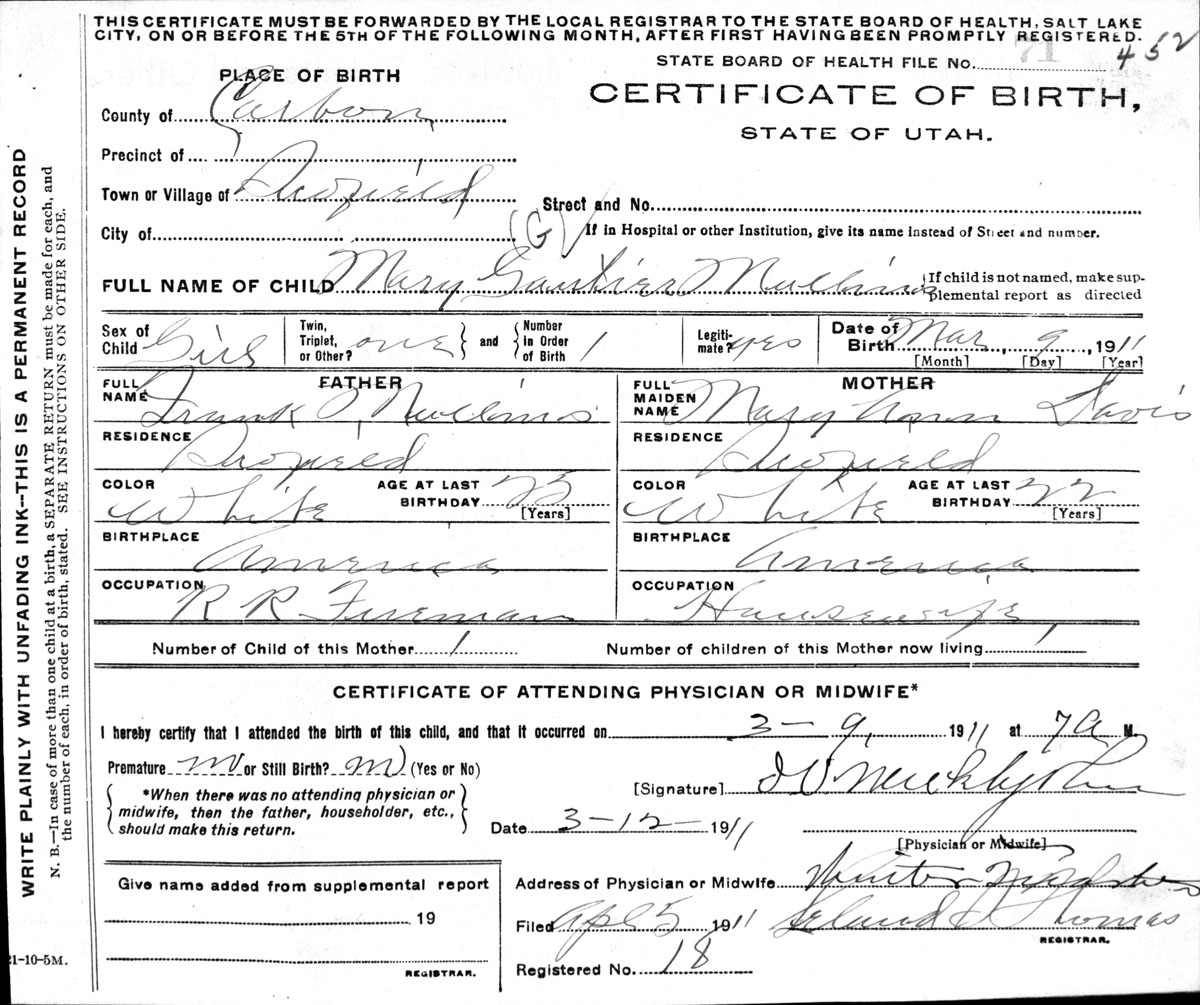 THIS CERTIFICATE MUST BE FORWARDED BY THE LOCAL REGISTRAR TO THE STATE BOARD OF HEALTH, SALT LAKE
CITY, ON OR BEFORE THE 5TH OF THE FOLLOWING MONTH, AFTER FIRST HAVING BEEN PROMPTLY REGISTERED.
STATE BOARD OF HEALTH FILE No. 71 452
PLACE OF BIRTH
CERTIFICATE OF BIRTH,
STATE OF UTAH.
County of Carbon
Precinct of
Town or Village of Scofield
Street and No.
City of (G) If in Hospital or other Institution, give its name instead of Street and number.
FULL NAME OF CHILD Mary Gautier Mullins {If child is not named, make sup-
plemental report as directed
Sex of Child Girl Twin, Triplet, or Other? one and Number in Order of Birth 1 Legiti- mate? yes Date of Birth Mar, 9, 1911
[Month] [Day] [Year]
FATHER MOTHER
FULL NAME Frank Mullins FULL MAIDEN NAME Mary Davis
RESIDENCE Scofield RESIDENCE Scofield
COLOR White AGE AT LAST BIRTHDAY 25 [Years] COLOR White AGE AT LAST BIRTHDAY 22 [Years]
BIRTHPLACE America BIRTHPLACE America
OCCUPATION R R Fireman OCCUPATION Housewife
Number of Child of this Mother 1 Number of children of this Mother now living 1
CERTIFICATE OF ATTENDING PHYSICIAN OR MIDWIFE*
I hereby certify that I attended the birth of this child, and that it occurred on 3-9, 1911 at 7 A M.
Premature no or Still Birth? no (Yes or No)
[Signature]
*When there was no attending physician or
midwife, then the father, householder, etc.,
should make this return.
Date 3-12- 1911
[Physician or Midwife]
Give name added from supplemental report
Address of Physician or Midwife Winter
19
Filed Apl 5 1911 Leland Thomas
REGISTRAR.
Registered No. 18
REGISTRAR.
21-10-5M.
WRITE PLAINLY WITH UNFADING INK--THIS IS A PERMANENT RECORD
N. B.—In case of more than one child at a birth, a SEPARATE RETURN must be made for each, and
the number of each, in order of birth, stated. SEE INSTRUCTIONS ON OTHER SIDE.